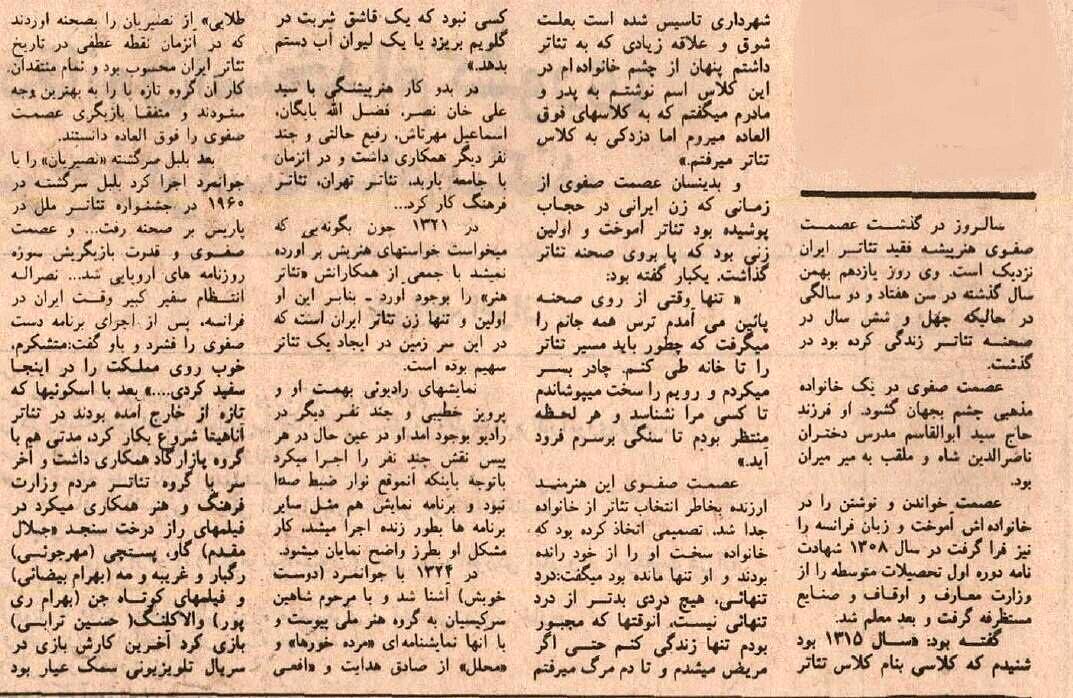 سالروز در گذشت عصمت
صفوی هنرپیشه فقید تئاتر ایران
نزدیک است. وی روز یازدهم بهمن
سال گذشته در سن هفتاد و دو سالگی
در حالیکه چهل و شش سال در
صحنه تئاتر زندگی کرده بود در
گذشت.
عصمت صفوی در یک خانواده
مذهبی چشم بجهان گشود. او فرزند
حاج سید ابوالقاسم مدرس دختران
ناصرالدین شاه و ملقب به میر میران
بود.
عصمت خواندن و نوشتن را در
خانواده اش آموخت و زبان فرانسه را
نیز فرا گرفت در سال ۱۳۰۸ شهادت
نامه دوره اول تحصیلات متوسطه را از
وزارت معارف و اوقاف و صنایع
مستظرفه گرفت و بعد معلم شد.
گفته بود: «سال ۱۳۱۵ بود
شنیدم که کلاسی بنام کلاس تئاتر
شهرداری تاسیس شده است بعلت
شوق و علاقه زیادی که به تئاتر
داشتم پنهان از چشم خانواده ام در
این کلاس اسم نوشتم به پدر و
مادرم میگفتم که به کلاسهای فوق
العاده میروم اما دزدکی به کلاس
تئاتر میرفتم.»
و بدینسان عصمت صفوی از
زمانی که زن ایرانی در حجاب
پوشیده بود تئاتر آموخت و اولین
زنی بود که پا بروی صحنه تئاتر
گذاشت. یکبار گفته بود:
« تنها وقتی از روی صحنه
پائین می آمدم ترس همه جانم را
میگرفت که چطور باید مسیر تئاتر
را تا خانه طی کنم. چادر بسر
میکردم و رویم را سخت میپوشاندم
تا کسی مرا نشناسد و هر لحظه
منتظر بودم تا سنگی برسرم فرود
آید.»
عصمت صفوی این هنرمند
ارزنده بخاطر انتخاب تئاتر از خانواده
جدا شد. تصمیمی اتخاذ کرده بود که
خانواده سخت او را از خود رانده
بودند و او تنها مانده بود میگفت:درد
تنهائی، هیچ دردی بدتر از درد
تنهائی نیست. آنوقتها که مجبور
بودم تنها زندگی کنم حتی اگر
مریض میشدم و تا دم مرگ میرفتم
کسی نبود که یک قاشق شربت در
گلویم بریزد یا یک لیوان آب دستم
بدهد.»
در بدو کار هنرپیشگی با سید
علی خان نصر، فضل الله بایگان،
اسماعیل مهرتاش، رفیع حالتی و چند
نفر دیگر همکاری داشت و در آنزمان
با جامعه باربد، تئاتر تهران، تئاتر
فرهنگ کار کرد...
در ۱۳۲۱ جون بگونه‌یی که
میخواست خواستهای هنریش بر آورده
نمیشد با جمعی از همکارانش «تئاتر
هنر» را بوجود آورد ـ بنابر این او
اولین و تنها زن تئاتر ایران است که
در این سر زمین در ایجاد یک تئاتر
سهیم بوده است.
نمایشهای رادیوئی بهمت او و
پرویز خطیبی و چند نفر دیگر در
رادیو بوجود آمد او در عین حال در هر
پیس نقش چند نفر را اجرا میکرد
باتوجه باینکه آنموقع نوار ضبط صدا
نبود و برنامه نمایش هم مثل سایر
برنامه ها بطور زنده اجرا میشد، کار
مشکل او بطرز واضح نمایان میشود.
در ۱۳۲۴ با جوانمرد (دوست
خوبش) آشنا شد و با مرحوم شاهین
سرکیسیان به گروه هنر ملی پیوست و
با آنها نمایشنامه‌ای «مرده خورها» و
«محلل» از صادق هدایت و «افعی
طلایی» از نصیریان را بصحنه آوردند
که در آنزمان نقطه عطفی در تاریخ
تئاتر ایران محسوب بود و تمام منتقدان
کار آن گروه تازه پا را به بهترین وجه
ستودند و متفقا بازیگری عصمت
صفوی را فوق العاده دانستند.
بعد بلبل سرگشته «نصیریان» را با
جوانمرد اجرا کرد بلبل سرگشته در
۱۹۶۰ در جشنواره تئاتر ملل در
پاریس بر صحنه رفت... و عصمت
صفوی و قدرت بازیگریش سوژه
روزنامه های اروپایی شد... نصراله
انتظام سفیر کبیر وقت ایران در
فرانسه، پس از اجرای برنامه دست
صفوی را فشرد و باو گفت:متشکرم،
خوب روی مملکت را در اینجا
سفید کردی....» بعد با اسکوئیها که
تازه از خارج آمده بودند در تئاتر
آناهیتا شروع بکار کرد، مدتی هم با
گروه پازارگاد همکاری داشت و آخر
سر با گروه تئاتر مردم وزارت
فرهنگ و هنر همکاری میکرد در
فیلمهای راز درخت سنجد «جلال
مقدم) گاو، پستچی (مهرجوئی)
رگبار و غریبه و مه (بهرام بیضائی)
و فیلمهای کوتاه جن (بهرام ری
پور) والاکلنگ( حسین ترابی)
بازی کرد آخرین کارش بازی در
سریال تلویزیونی سمک عیار بود